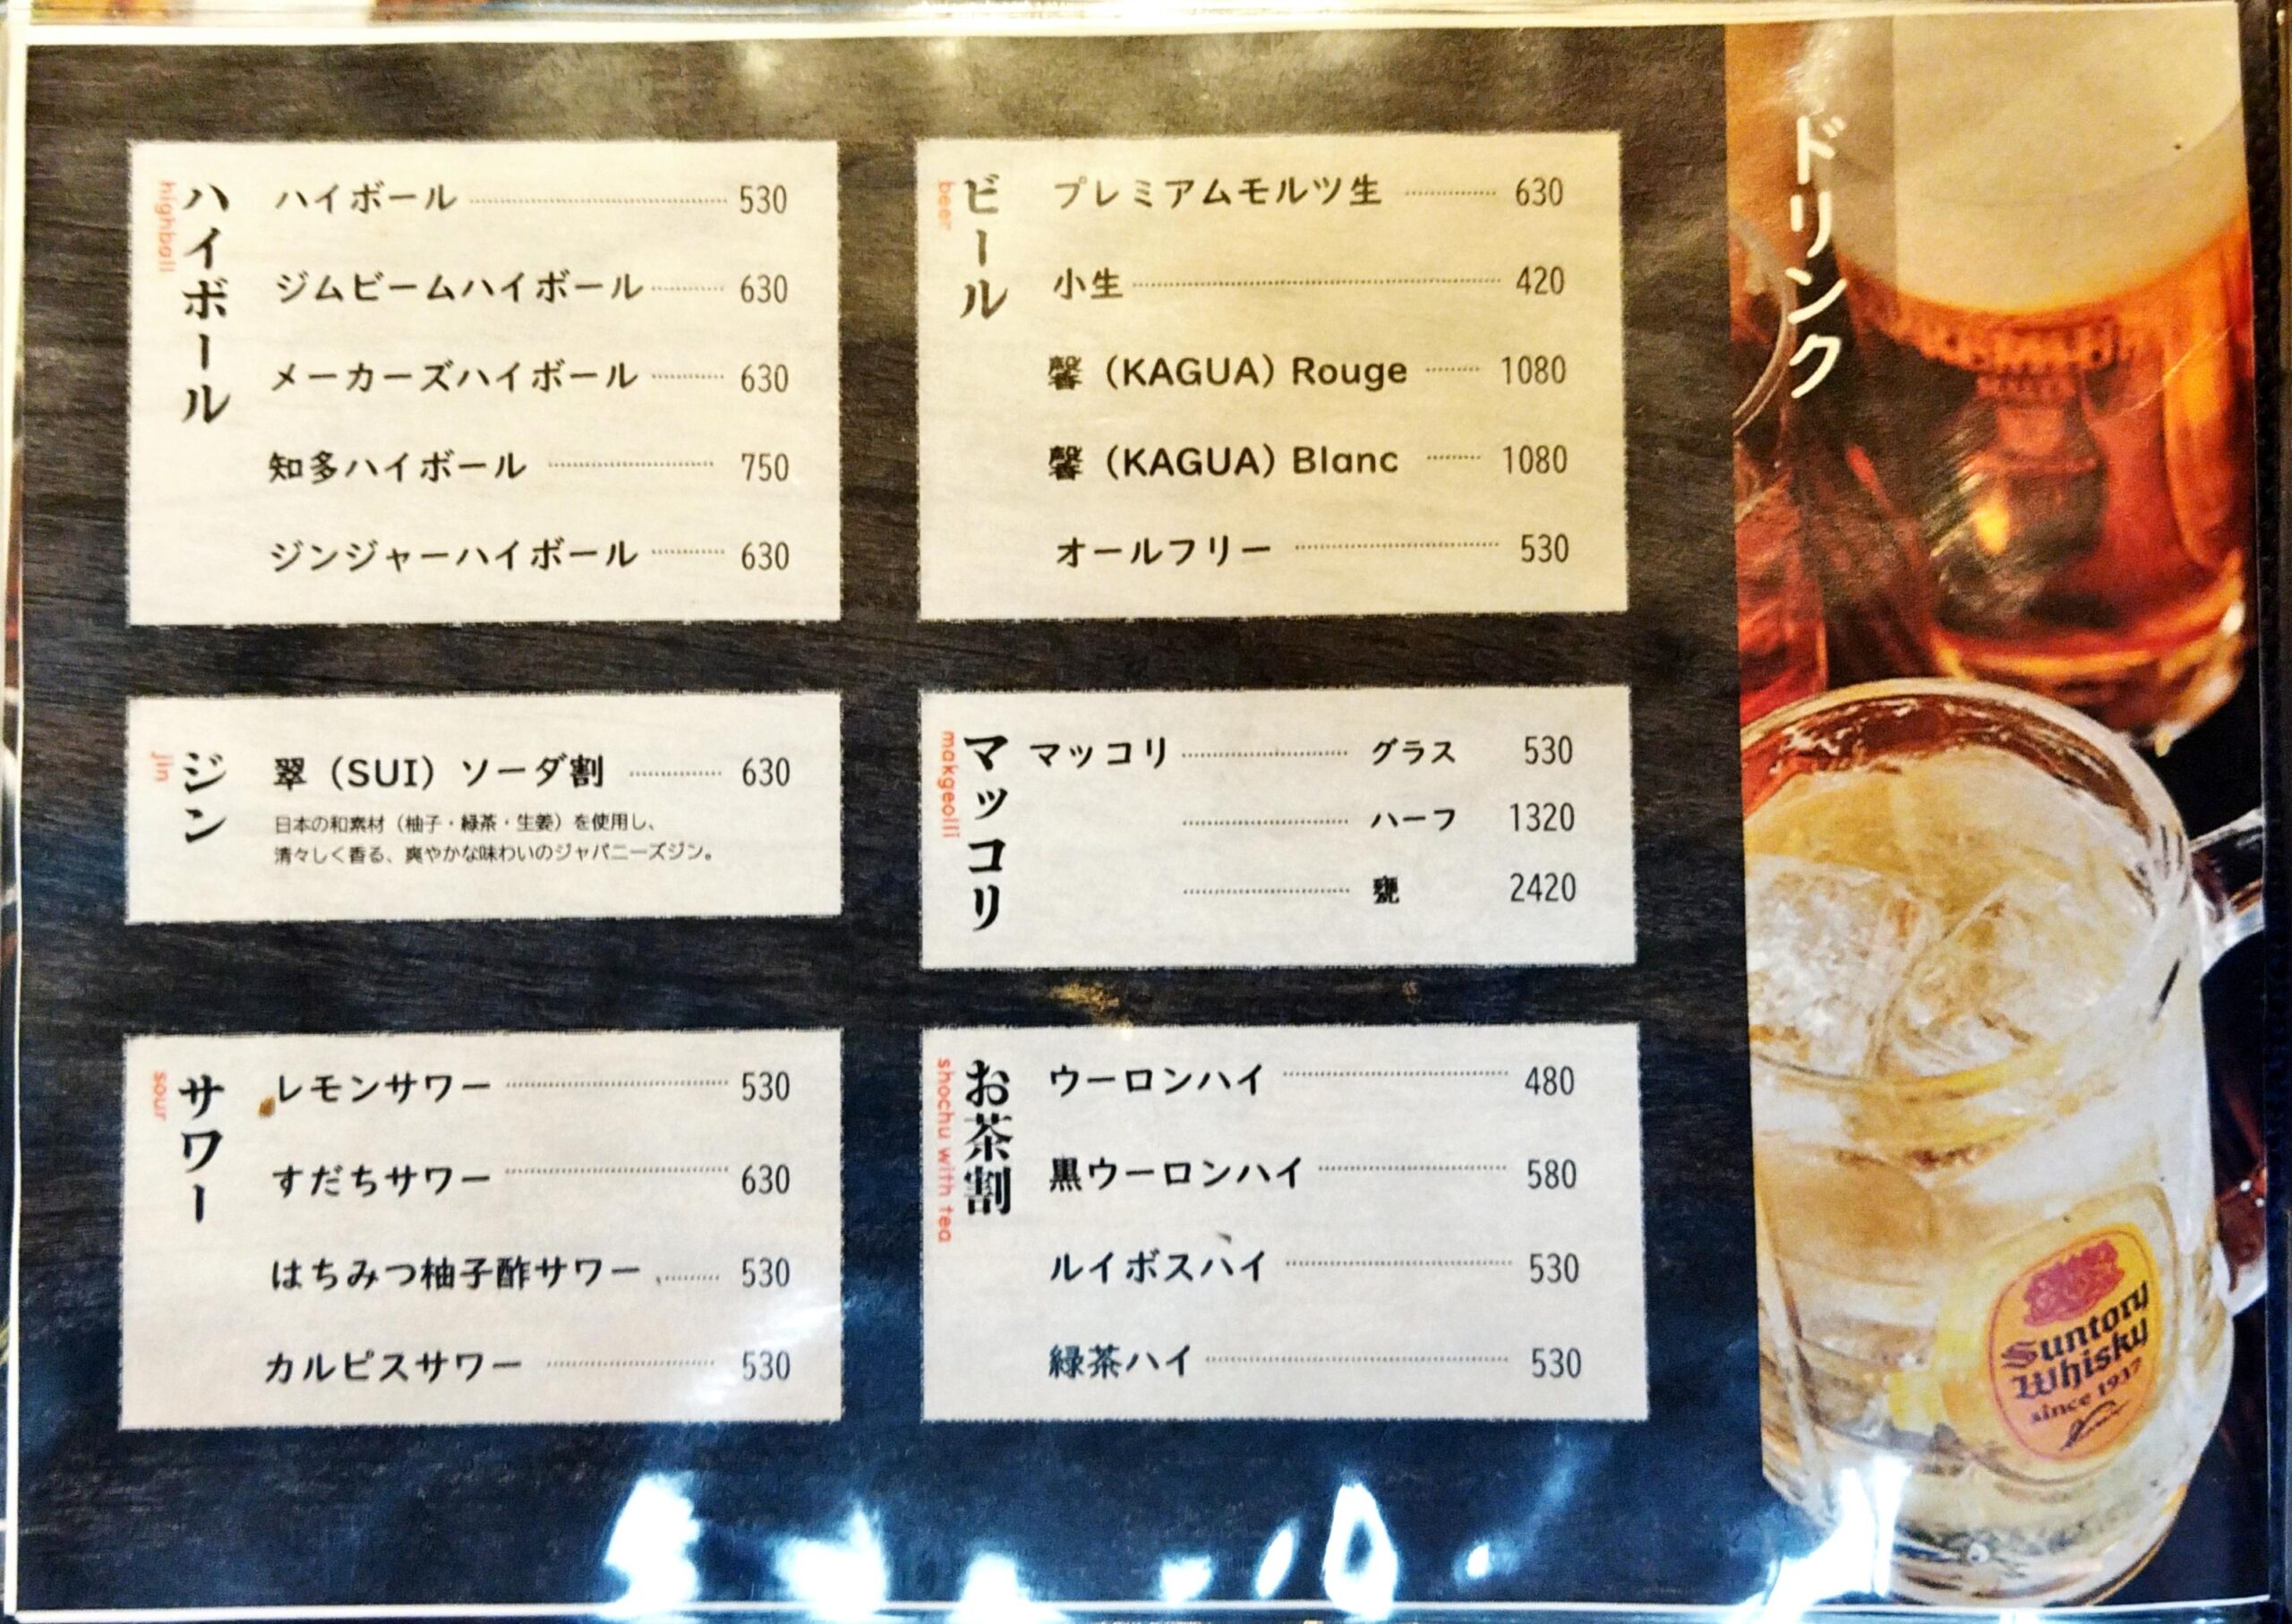 ドリンク
ビール
beer
プレミアムモルツ生 630
小生 420
馨（KAGUA）Rouge 1080
馨（KAGUA）Blanc 1080
オールフリー 530
マッコリ
makgeolli
マッコリ グラス 530
ハーフ 1320
甕 2420
お茶割
shochu with tea
ウーロンハイ 480
黒ウーロンハイ 580
ルイボスハイ 530
緑茶ハイ 530
ハイボール
highball
ハイボール 530
ジムビームハイボール 630
メーカーズハイボール 630
知多ハイボール 750
ジンジャーハイボール 630
ジン
jin
翠（SUI）ソーダ割 630
日本の和素材（柚子・緑茶・生姜）を使用し、
清々しく香る、爽やかな味わいのジャパニーズジン。
サワー
sour
レモンサワー 530
すだちサワー 630
はちみつ柚子酢サワー 530
カルピスサワー 530
Suntory
Whisky
since 1937